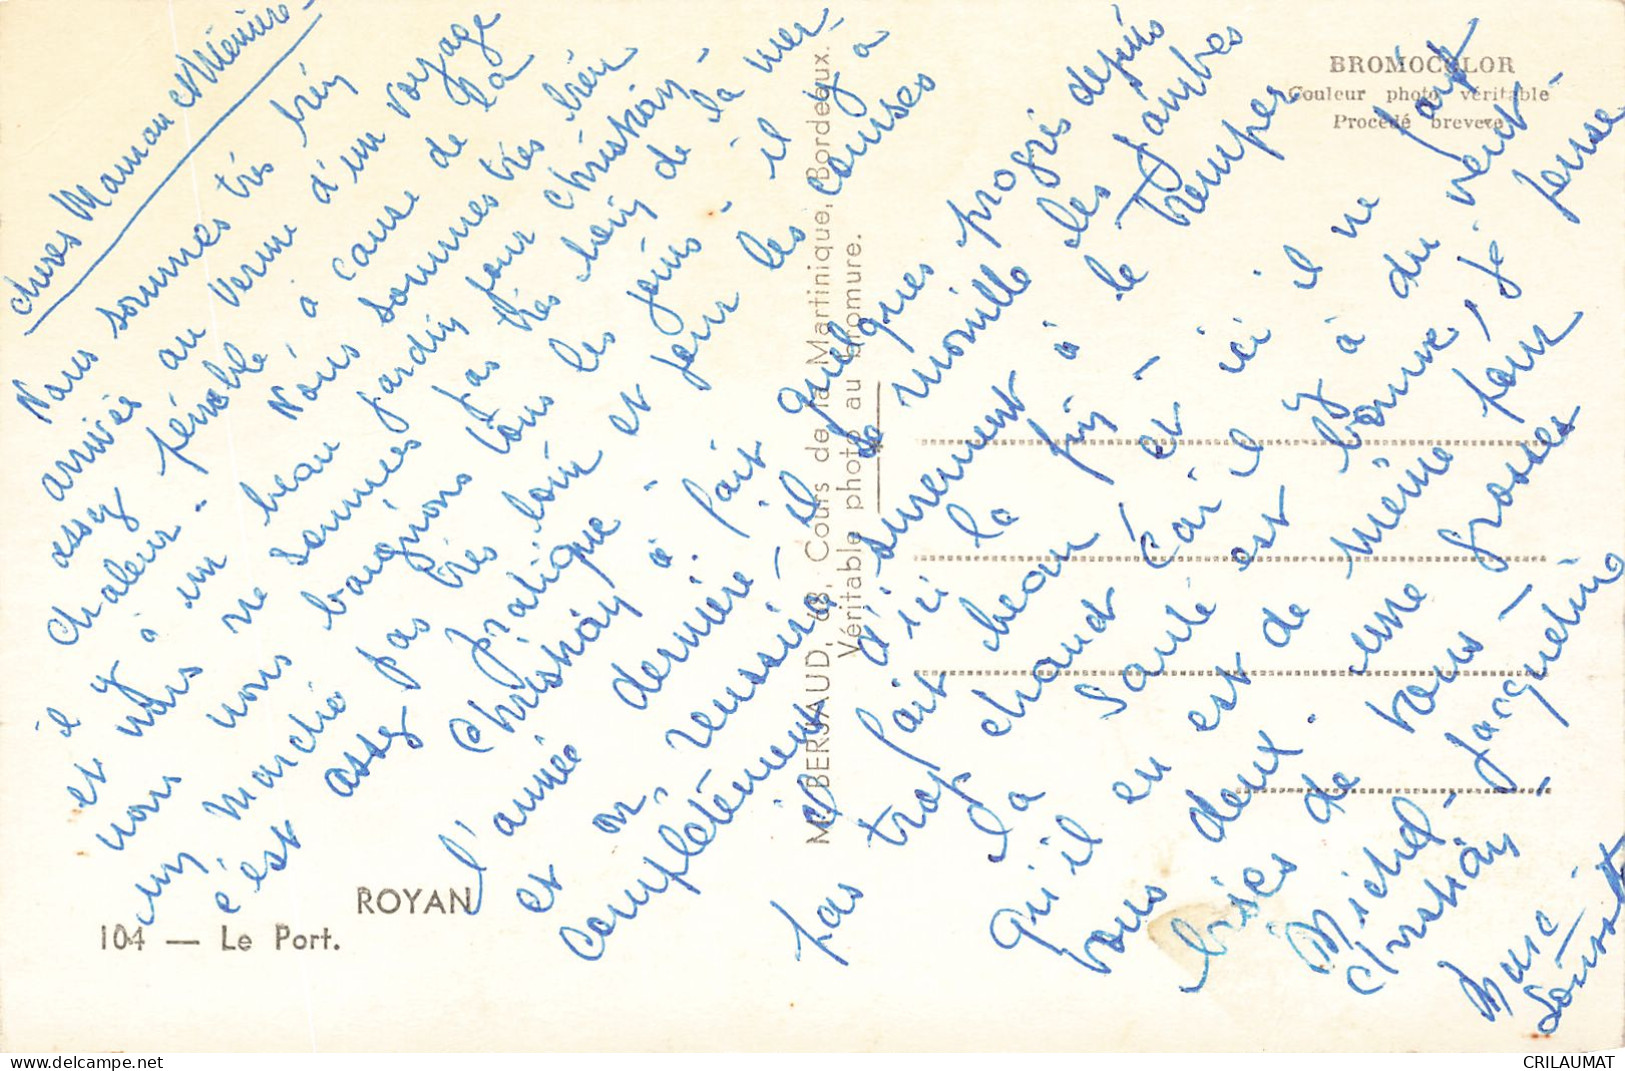 chères Maman et Mémère -
Nous sommes très bien
arrivée au terme d'un voyage
assez pénible à cause de la
chaleur - Nous sommes très bien
il y à un beau jardin pour Christian -
et nous ne sommes pas très loin de la mer -
nous nous baignons tous les jours - il y a
un marché pas très loin et pour les courses
c'est assez pratique -
Christian à fait quelques progrès depuis
l'année dernière - il se mouille les jambes
et on, reussira surement à le tremper
complètement d'ici la fin -
il fait beau et ici il ne fait
pas trop chaud car il y à du vent -
la santé est bonne, je pense
qu'il en est de même pour
vous deux. une grosses
bises de vous -
Michel - Jacqueline
Christian
BROMOCOLOR
Couleur photo véritable
Procédé breveté
M. BERJAUD, 48, Cours de la Martinique, Bordeaux.
Véritable photo au bromure.
ROYAN
104 — Le Port.
CRILAUMAT